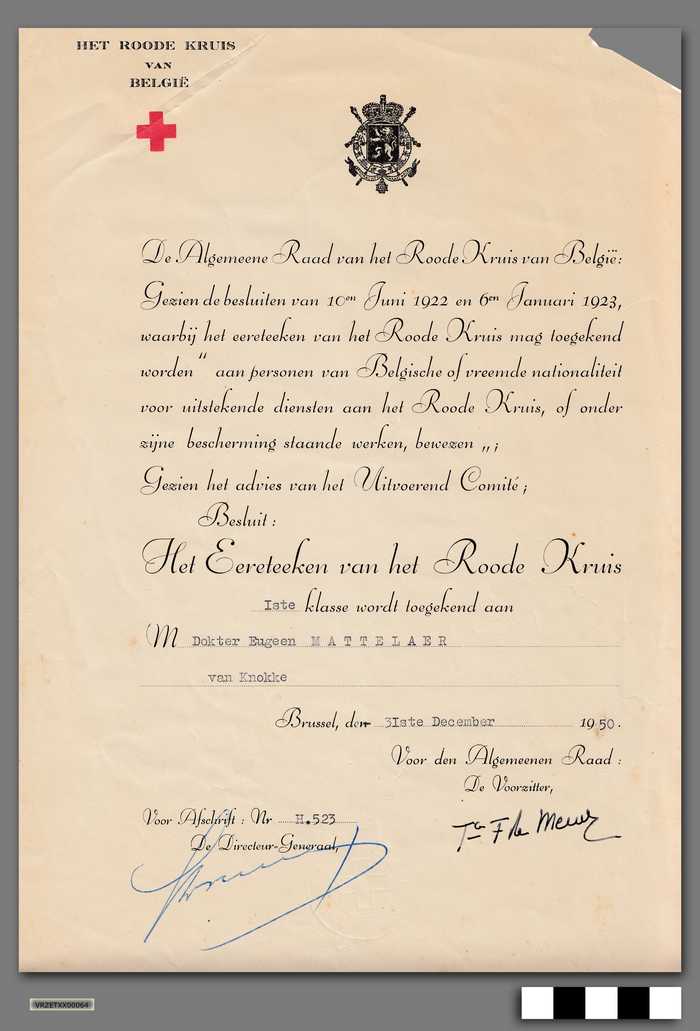 HET ROODE KRUIS
VAN
BELGIË
De Algemeene Raad van het Roode Kruis van België:
Gezien de besluiten van 10en Juni 1922 en 6en Januari 1923,
waarbij het eereteeken van het Roode Kruis mag toegekend
worden " aan personen van Belgische of vreemde nationaliteit
voor uitstekende diensten aan het Roode Kruis, of onder
zijne bescherming staande werken, bewezen „;
Gezien het advies van het Uitvoerend Comité;
Besluit:
Het Eereteeken van het Roode Kruis
Iste klasse wordt toegekend aan
M Dokter Eugeen MATTELAER
van Knokke
Brussel, den 3Iste December 1950.
Voor den Algemeenen Raad:
De Voorzitter,
Voor Afschrift: Nr H.523
De Directeur-Generaal,
VRZETXX00064